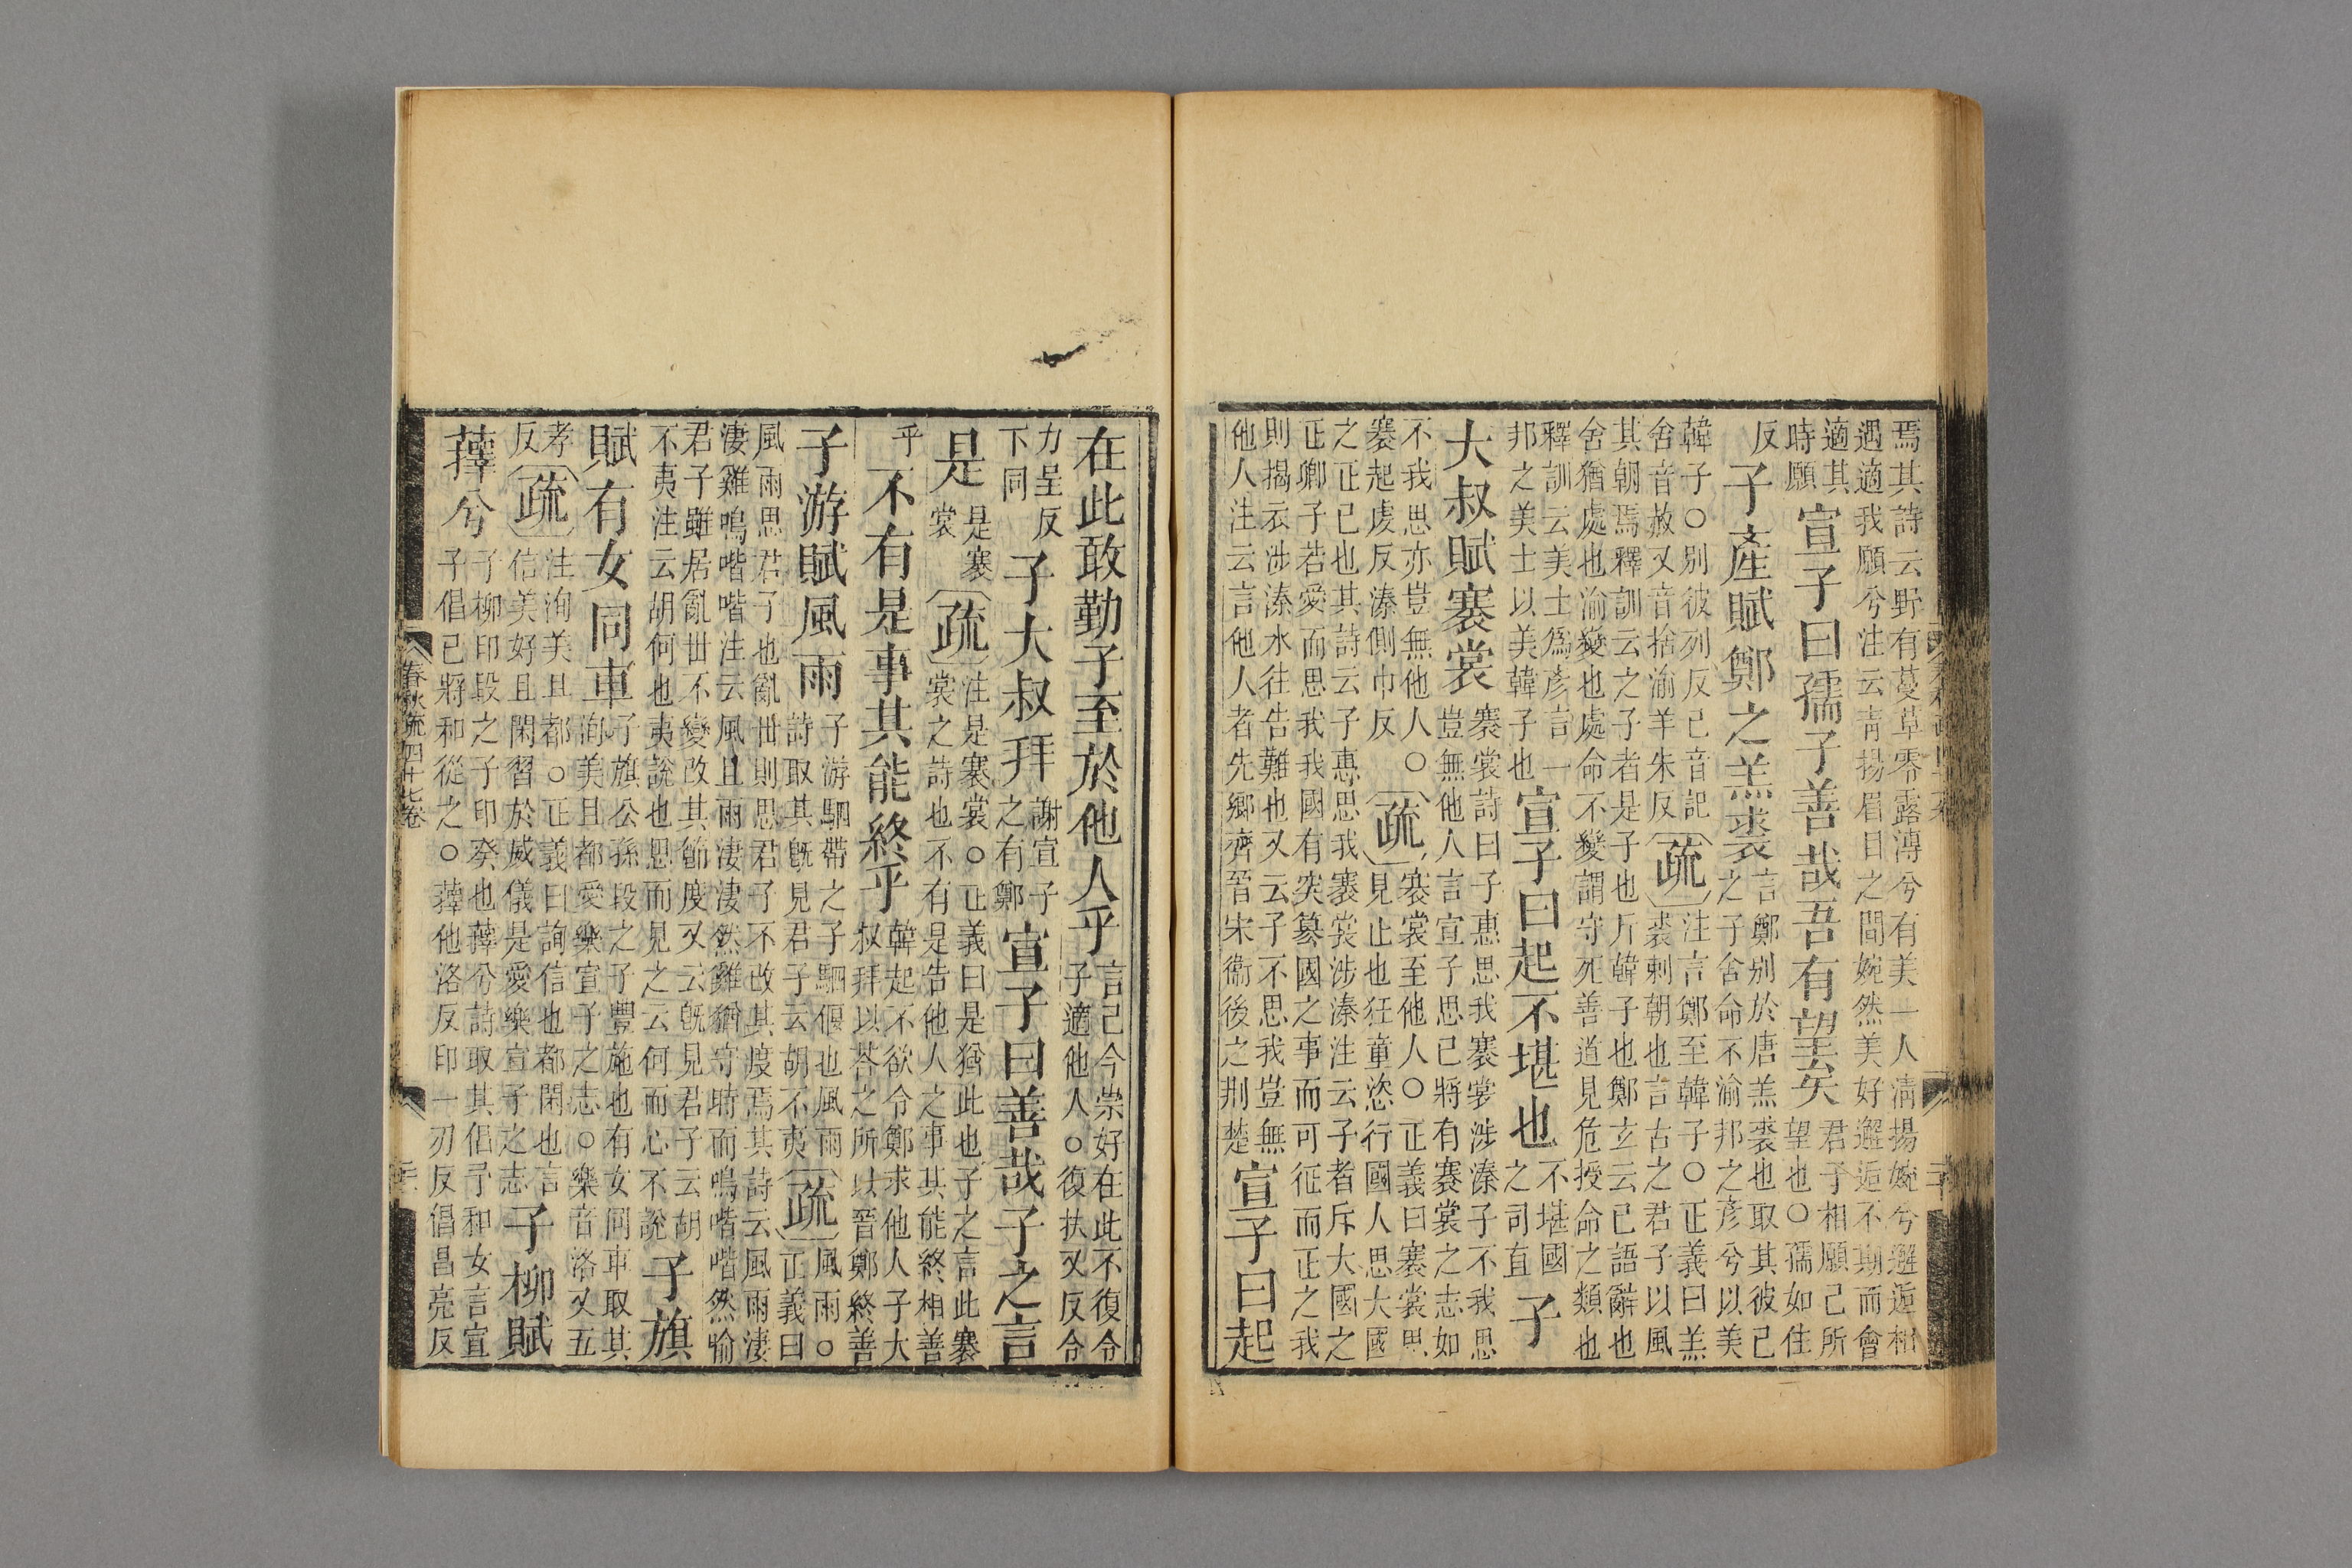 焉其詩云野有蔓草零露漙兮有美一人清揚婉兮邂逅相
遇適我願兮注云青揚眉目之間婉然美好邂逅不期而會
適其
時願
宣子曰孺子善哉吾有望矣
君子相願己所
望也○孺如住
反
子產賦鄭之羔裘
言鄭別於唐羔裘也取其彼己
之子舍命不渝邦之彥兮以美
韓子○別彼列反己音記
舍音赦又音捨渝羊朱反
疏
注言鄭至韓子○正義曰羔
裘刺朝也言古之君子以風
其朝焉釋訓云之子者是子也斤韓子也鄭玄云已語辭也
舍猶處也渝變也處命不變謂守死善道見危授命之類也
釋訓云美士爲彥言一
邦之美士以美韓子也
宣子曰起不堪也
不堪國
之司直
子
大叔賦褰裳
褰裳詩曰子惠思我褰裳涉溱子不我思
豈無他人言宣子思己將有褰裳之志如
不我思亦豈無他人○
褰起虔反溱側巾反
疏
褰裳至他人○正義曰褰裳思
見正也狂童恣行國人思大國
之正己也其詩云子惠思我褰裳涉溱注云子者斥大國之
正卿子若愛而思我我國有突篡國之事而可征而正之我
則揭衣涉溱水往告難也又云子不思我豈無
他人注云言他人者先鄉齊晉宋衞後之荆楚
宣子曰起
在此敢勤子至於他人乎
言己今崇好在此不復令
子適他人○復扶又反令
力呈反
下同
子大叔拜
謝宣子
之有鄭
宣子曰善哉子之言
是
是褰
裳
疏
注是褰裳○正義曰是猶此也子之言此褰
裳之詩也不有是告他人之事其能終相善
乎
不有是事其能終乎
韓起不欲令鄭求他人子大
叔拜以荅之所以晉鄭終善
子游賦風雨
子游駟帶之子駟偃也風雨
詩取其旣見君子云胡不夷
疏
風雨○
正義曰
風雨思君子也亂世則思君子不改其度焉其詩云風雨淒
淒雞鳴喈喈注云風且雨淒淒然雞猶守時而鳴喈喈然喻
君子雖居亂世不變改其節度又云旣見君子云胡
不夷注云胡何也夷說也思而見之云何而心不說
子旗
賦有女同車
子旗公孫段之子豐施也有女同車取其
洵美且都愛樂宣子之志○樂音洛又五
孝
反
疏
注洵美且都○正義曰詢信也都閑也言
信美好且閑習於威儀是愛樂宣子之志
子柳賦
蘀兮
子柳印段之子印癸也蘀兮詩取其倡予和女言宣
子倡己將和從之○蘀他洛反印一刃反倡昌亮反
春秋疏四十七卷